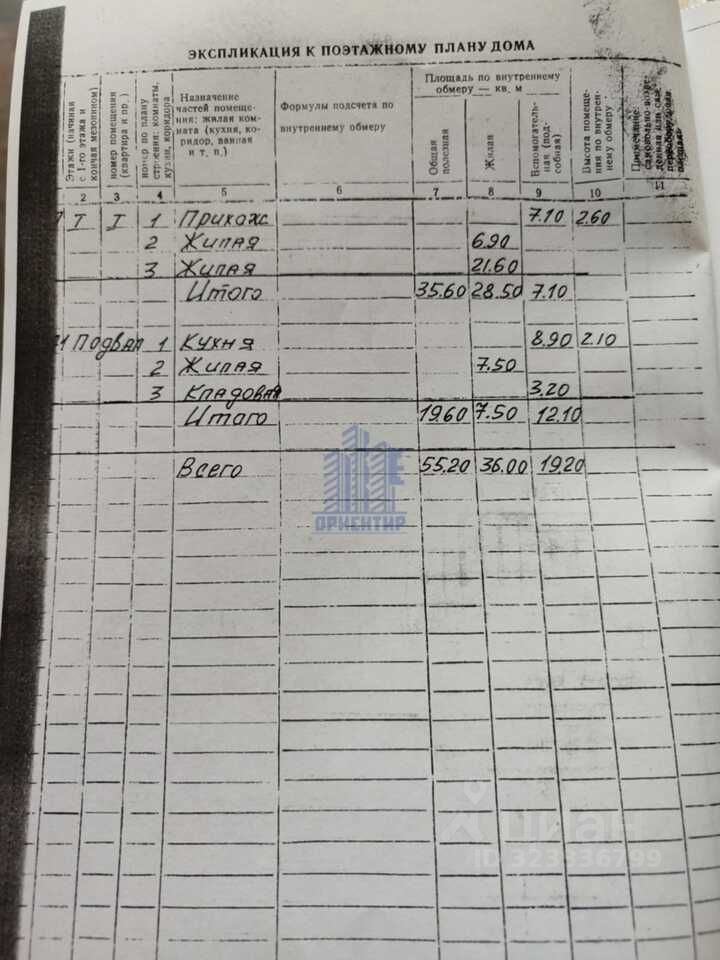 ЭКСПЛИКАЦИЯ К ПОЭТАЖНОМУ ПЛАНУ ДОМА
Этажи (начиная с 1-го этажа и кончая мезонином)
номер помещения (квартира и пр.)
номер по плану строения: комнаты, кухни, коридора
Назначение
частей помеще-
ния: жилая ком-
ната (кухня, ко-
ридор, ванная
и т. п.)
Формулы подсчета по
внутреннему обмеру
Площадь по внутреннему
обмеру — кв. м
Общая полезная
Жилая
Вспомогатель-
ная (под-
собная)
Высота помеще-
ния по внутрен-
нему обмеру
Примечание:
2 3 4 5 6 7 8 9 10 11
I I 1 Прихож 7.10 2.60
2 Жилая 6.90
3 Жилая 21.60
Итого 35.60 28.50 7.10
Подвал 1 Кухня 8.90 2.10
2 Жилая 7.50
3 Кладовая 3.20
Итого 19.60 7.50 12.10
Всего 55.20 36.00 19.20
ОРИЕНТИР
циан
ID 323336799